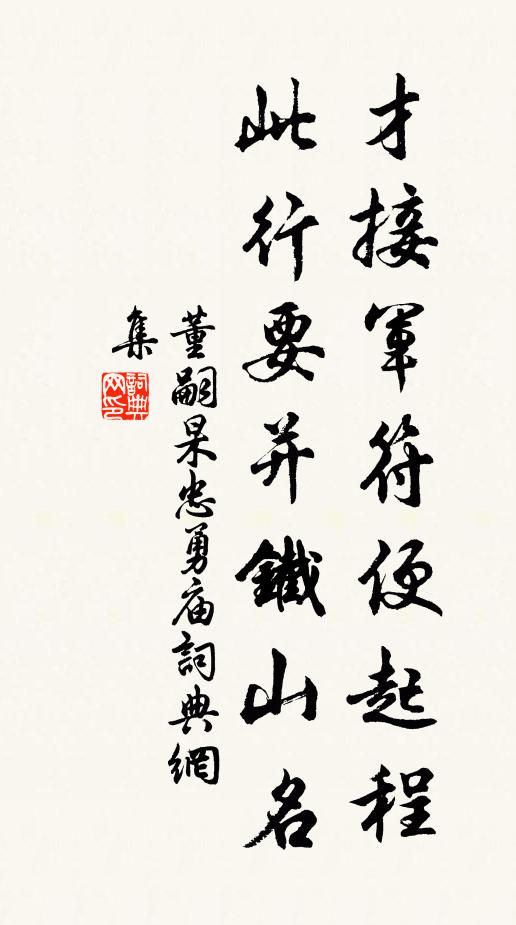 才接軍符便起程
此行要并鐵山名
董嗣杲忠勇庙詞典網
集
詞典
网印